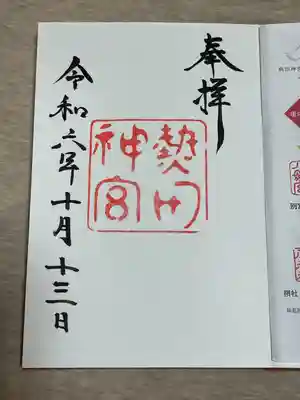 奉拝
熱田
神宮
令和六年十月十三日